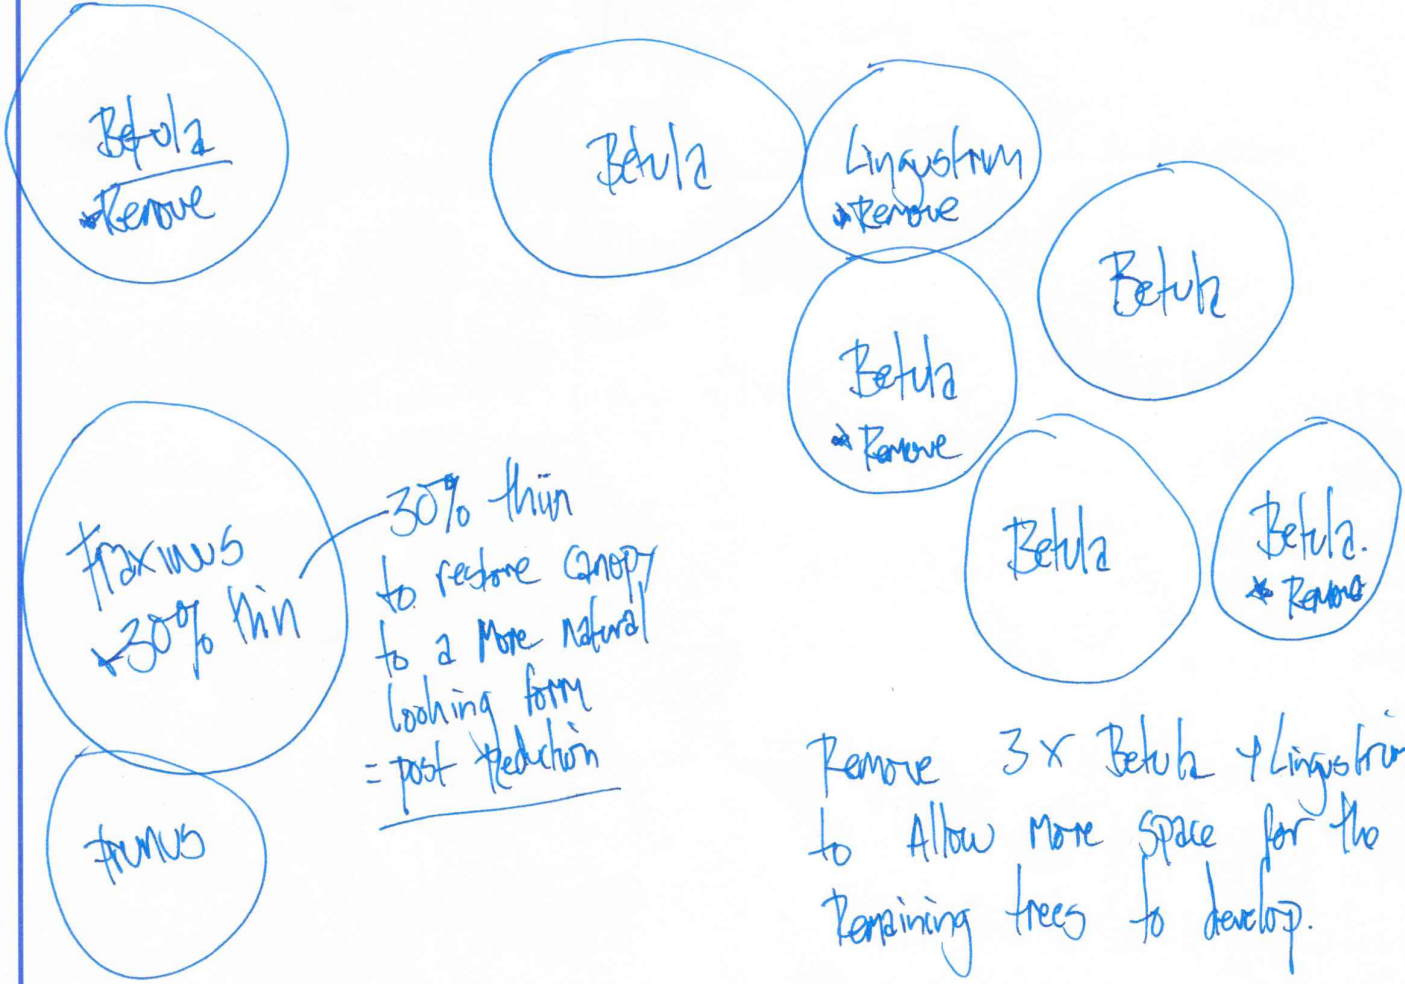 Betula
*Remove
Betula
Lingustrum
*Remove
Betula
Betula
*Remove
Betula
Betula.
*Remove
Fraxinus
30% thin
30% thin
to restore canopy
to a more natural
looking form
= post Reduction
Prunus
Remove 3x Betula + Lingustrum
to Allow more space for the
Remaining trees to develop.